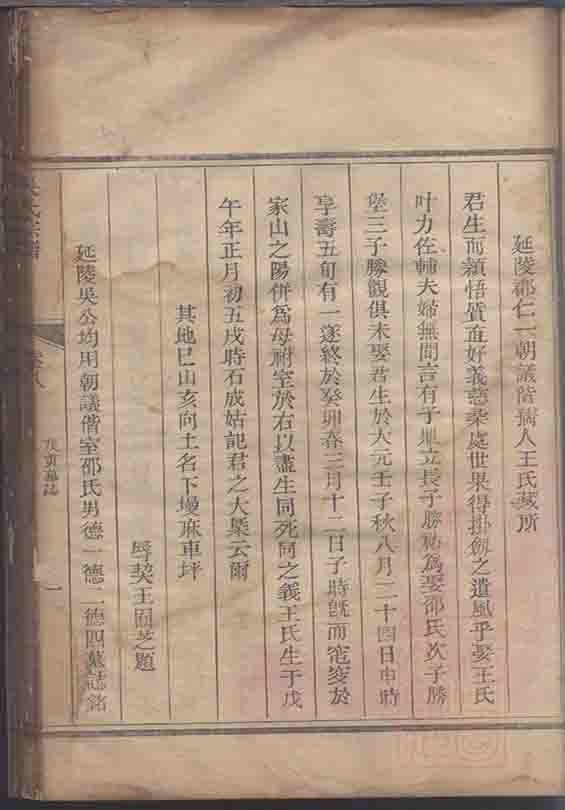 延陵郡仁一朝議階孺人王氏藏所
君生而穎悟質直好義慈柔處世果得掛劔之遺風乎娶王氏
叶力佐輔夫婦無間言有子鼎立長子勝祐為娶邵氏次子勝
堡三子勝觀俱未娶君生於大元壬子秋八月二十四日申時
享壽五旬有一遂終於癸卯春三月十二日子時旣而窀穸於
家山之陽併為母祔室於右以盡生同死同之義王氏生于戊
午年正月初五戌時石成姑記君之大槩云爾
其地巳山亥向土名下墁麻車坪
辱契王囿芝題
延陵吳公均用朝議偕室邵氏男德一德二德四墓誌銘
吳氏宗譜
卷八
一